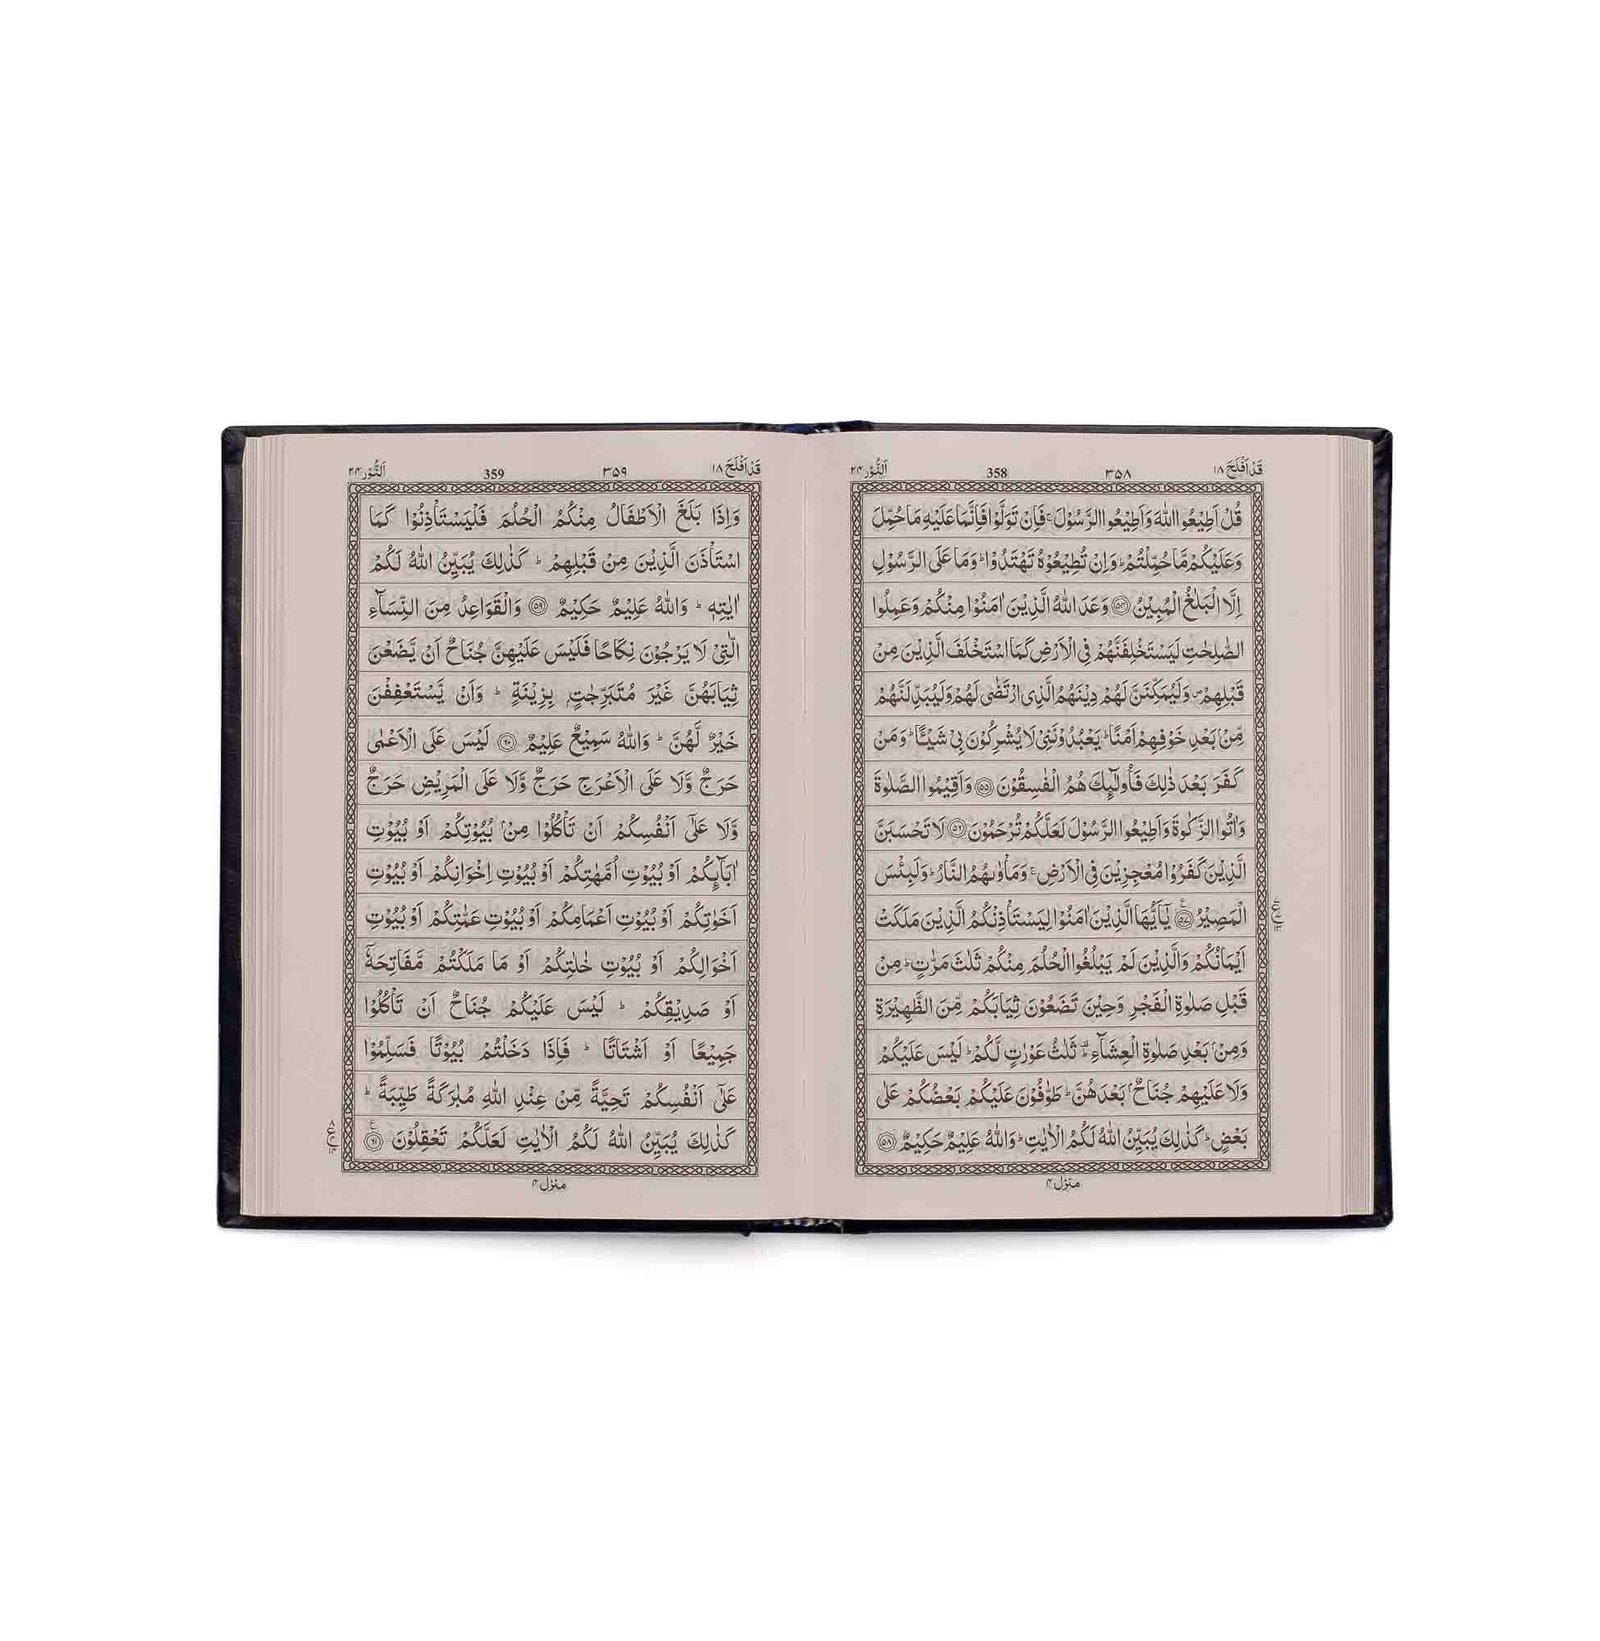 قَدْ اَفْلَحَ ١٨ ٣٥٨ 358 اَلنُّوْر ٢٤
قُلْ اَطِيْعُوا اللّٰهَ وَاَطِيْعُوا الرَّسُوْلَ ۚ فَاِنْ تَوَلَّوْا فَاِنَّمَا عَلَيْهِ مَا حُمِّلَ
وَعَلَيْكُمْ مَّا حُمِّلْتُمْ ؕ وَاِنْ تُطِيْعُوْهُ تَهْتَدُوْا ؕ وَمَا عَلَى الرَّسُوْلِ
اِلَّا الْبَلٰغُ الْمُبِيْنُ ﴿٥٤﴾ وَعَدَ اللّٰهُ الَّذِيْنَ اٰمَنُوْا مِنْكُمْ وَعَمِلُوا
الصّٰلِحٰتِ لَيَسْتَخْلِفَنَّهُمْ فِى الْاَرْضِ كَمَا اسْتَخْلَفَ الَّذِيْنَ مِنْ
قَبْلِهِمْ ۪ وَلَيُمَكِّنَنَّ لَهُمْ دِيْنَهُمُ الَّذِى ارْتَضٰى لَهُمْ وَلَيُبَدِّلَنَّهُمْ
مِّنْۢ بَعْدِ خَوْفِهِمْ اَمْنًا ؕ يَعْبُدُوْنَنِىْ لَا يُشْرِكُوْنَ بِىْ شَيْـًٔا ؕ وَمَنْ
كَفَرَ بَعْدَ ذٰلِكَ فَاُولٰٓئِكَ هُمُ الْفٰسِقُوْنَ ﴿٥٥﴾ وَاَقِيْمُوا الصَّلٰوةَ
وَاٰتُوا الزَّكٰوةَ وَاَطِيْعُوا الرَّسُوْلَ لَعَلَّكُمْ تُرْحَمُوْنَ ﴿٥٦﴾ لَا تَحْسَبَنَّ
الَّذِيْنَ كَفَرُوْا مُعْجِزِيْنَ فِى الْاَرْضِ ۚ وَمَاْوٰىهُمُ النَّارُ ؕ وَلَبِئْسَ
الْمَصِيْرُ ﴿٥٧﴾ يٰۤاَيُّهَا الَّذِيْنَ اٰمَنُوْا لِيَسْتَاْذِنْكُمُ الَّذِيْنَ مَلَكَتْ
اَيْمَانُكُمْ وَالَّذِيْنَ لَمْ يَبْلُغُوا الْحُلُمَ مِنْكُمْ ثَلٰثَ مَرّٰتٍ ؕ مِنْ
قَبْلِ صَلٰوةِ الْفَجْرِ وَحِيْنَ تَضَعُوْنَ ثِيَابَكُمْ مِّنَ الظَّهِيْرَةِ
وَمِنْۢ بَعْدِ صَلٰوةِ الْعِشَآءِ ۛؕ ثَلٰثُ عَوْرٰتٍ لَّكُمْ ؕ لَيْسَ عَلَيْكُمْ
وَلَا عَلَيْهِمْ جُنَاحٌۢ بَعْدَهُنَّ ؕ طَوّٰفُوْنَ عَلَيْكُمْ بَعْضُكُمْ عَلٰى
بَعْضٍ ؕ كَذٰلِكَ يُبَيِّنُ اللّٰهُ لَكُمُ الْاٰيٰتِ ؕ وَاللّٰهُ عَلِيْمٌ حَكِيْمٌ ﴿٥٨﴾
منزل ٤
قَدْ اَفْلَحَ ١٨ ٣٥٩ 359 اَلنُّوْر ٢٤
وَاِذَا بَلَغَ الْاَطْفَالُ مِنْكُمُ الْحُلُمَ فَلْيَسْتَاْذِنُوْا كَمَا
اسْتَاْذَنَ الَّذِيْنَ مِنْ قَبْلِهِمْ ؕ كَذٰلِكَ يُبَيِّنُ اللّٰهُ لَكُمْ
اٰيٰتِهٖ ؕ وَاللّٰهُ عَلِيْمٌ حَكِيْمٌ ﴿٥٩﴾ وَالْقَوَاعِدُ مِنَ النِّسَآءِ
الّٰتِىْ لَا يَرْجُوْنَ نِكَاحًا فَلَيْسَ عَلَيْهِنَّ جُنَاحٌ اَنْ يَّضَعْنَ
ثِيَابَهُنَّ غَيْرَ مُتَبَرِّجٰتٍۭ بِزِيْنَةٍ ؕ وَاَنْ يَّسْتَعْفِفْنَ
خَيْرٌ لَّهُنَّ ؕ وَاللّٰهُ سَمِيْعٌ عَلِيْمٌ ﴿٦٠﴾ لَيْسَ عَلَى الْاَعْمٰى
حَرَجٌ وَّلَا عَلَى الْاَعْرَجِ حَرَجٌ وَّلَا عَلَى الْمَرِيْضِ حَرَجٌ
وَّلَا عَلٰۤى اَنْفُسِكُمْ اَنْ تَاْكُلُوْا مِنْۢ بُيُوْتِكُمْ اَوْ بُيُوْتِ
اٰبَآئِكُمْ اَوْ بُيُوْتِ اُمَّهٰتِكُمْ اَوْ بُيُوْتِ اِخْوَانِكُمْ اَوْ بُيُوْتِ
اَخَوٰتِكُمْ اَوْ بُيُوْتِ اَعْمَامِكُمْ اَوْ بُيُوْتِ عَمّٰتِكُمْ اَوْ بُيُوْتِ
اَخْوَالِكُمْ اَوْ بُيُوْتِ خٰلٰتِكُمْ اَوْ مَا مَلَكْتُمْ مَّفَاتِحَهٗۤ
اَوْ صَدِيْقِكُمْ ؕ لَيْسَ عَلَيْكُمْ جُنَاحٌ اَنْ تَاْكُلُوْا
جَمِيْعًا اَوْ اَشْتَاتًا ؕ فَاِذَا دَخَلْتُمْ بُيُوْتًا فَسَلِّمُوْا
عَلٰۤى اَنْفُسِكُمْ تَحِيَّةً مِّنْ عِنْدِ اللّٰهِ مُبٰرَكَةً طَيِّبَةً ؕ
كَذٰلِكَ يُبَيِّنُ اللّٰهُ لَكُمُ الْاٰيٰتِ لَعَلَّكُمْ تَعْقِلُوْنَ ﴿٦١﴾
منزل ٤